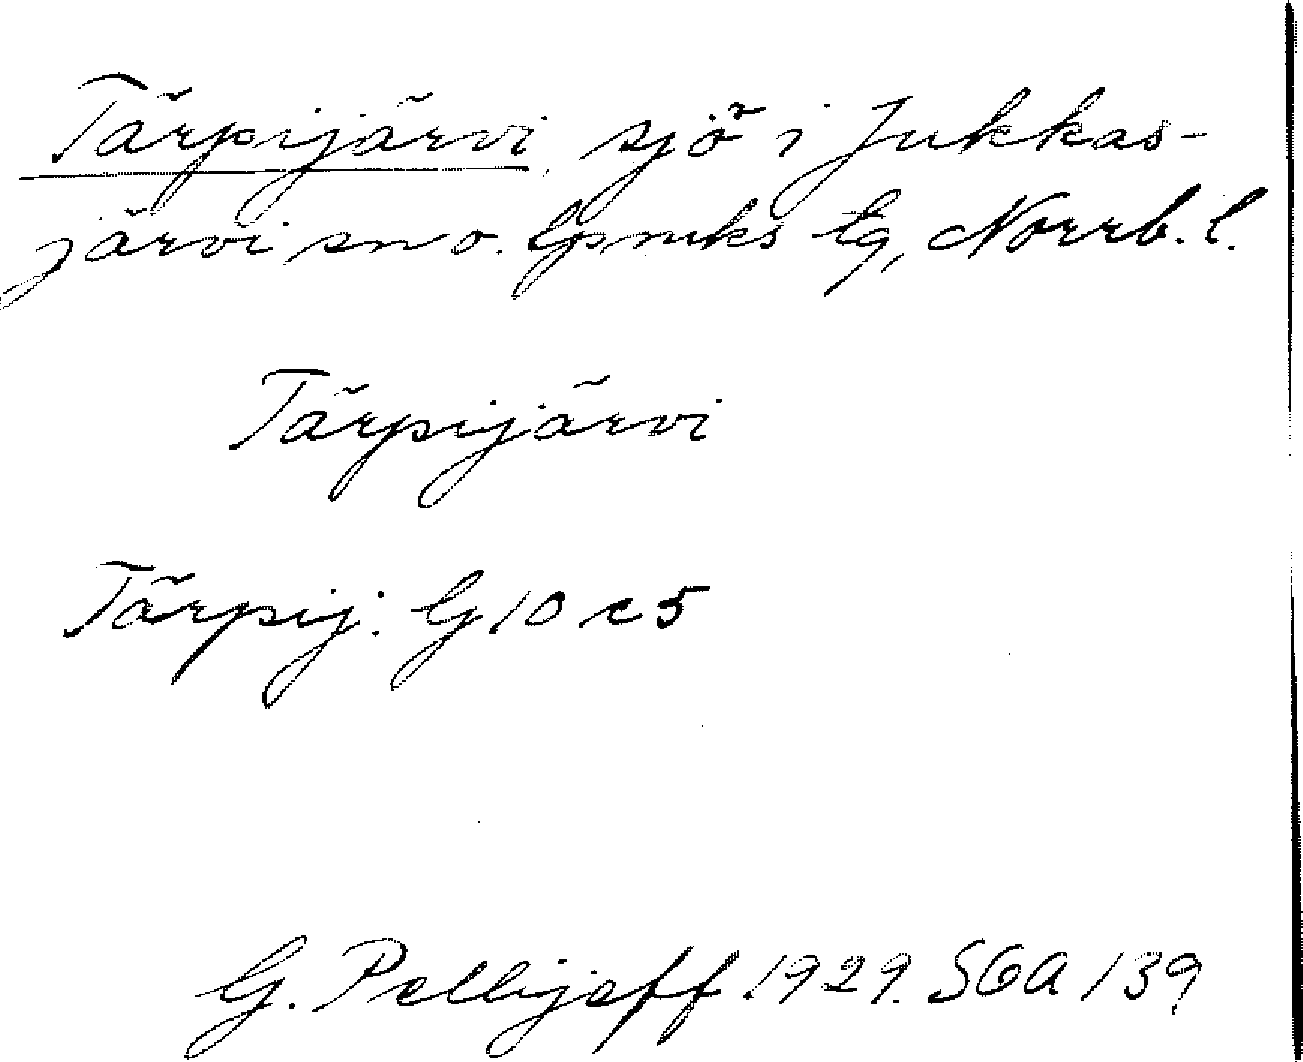 Tärpijärvi, sjö i Jukkas-
järvi sn o. lpmks tg, Norrb. l.
Tärpijärvi
Tärpij: G 10 c 5
G. Pellijeff 1929. SGA 139